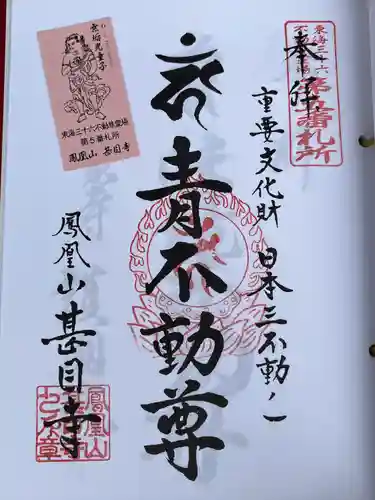 東海三十六
不動霊場
第五番札所
奉拝
重要文化財 日本三不動ノ一
青不動尊
鳳凰山 甚目寺
東海三十六不動尊霊場
第5番札所
鳳凰山 甚目寺